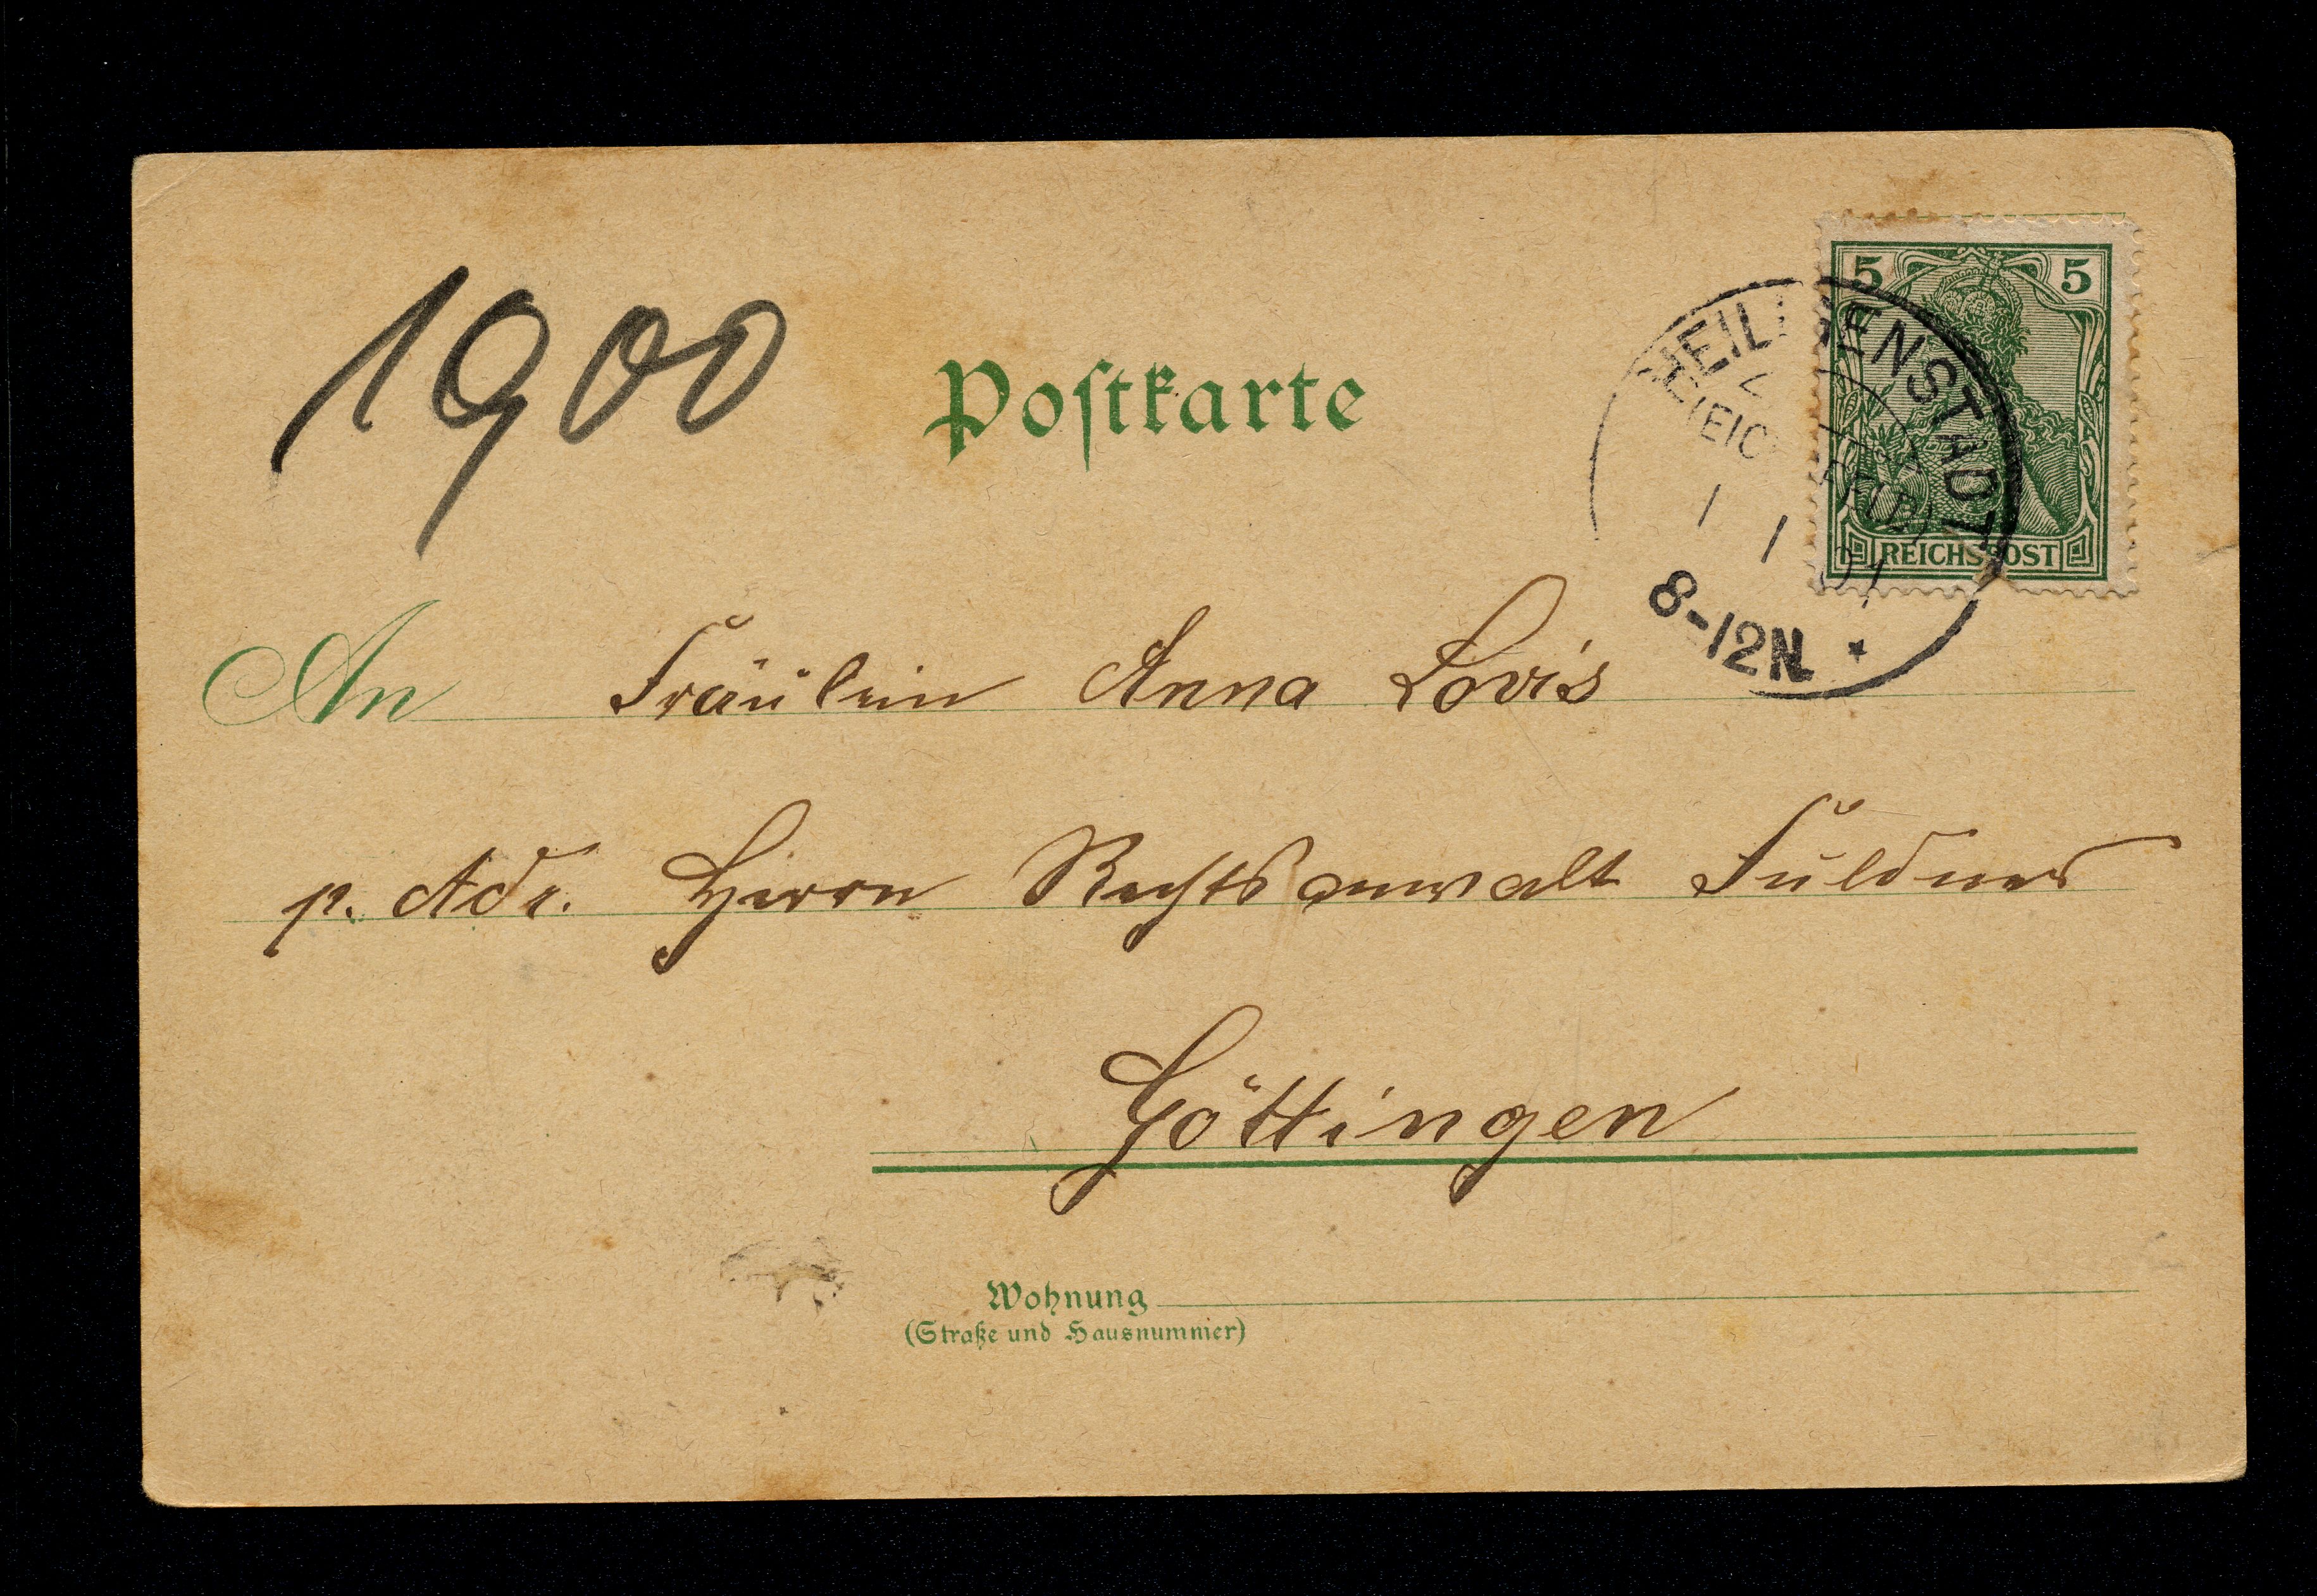 1900
Postkarte
5 5
REICHSPOST
HEILIGENSTADT
(EICHSFELD)
1 1 01
8-12N. *
An Fräulein Anna Lovis
p. Adr. Herrn Rechtsanwalt Füldner
Göttingen
Wohnung
(Straße und Hausnummer)